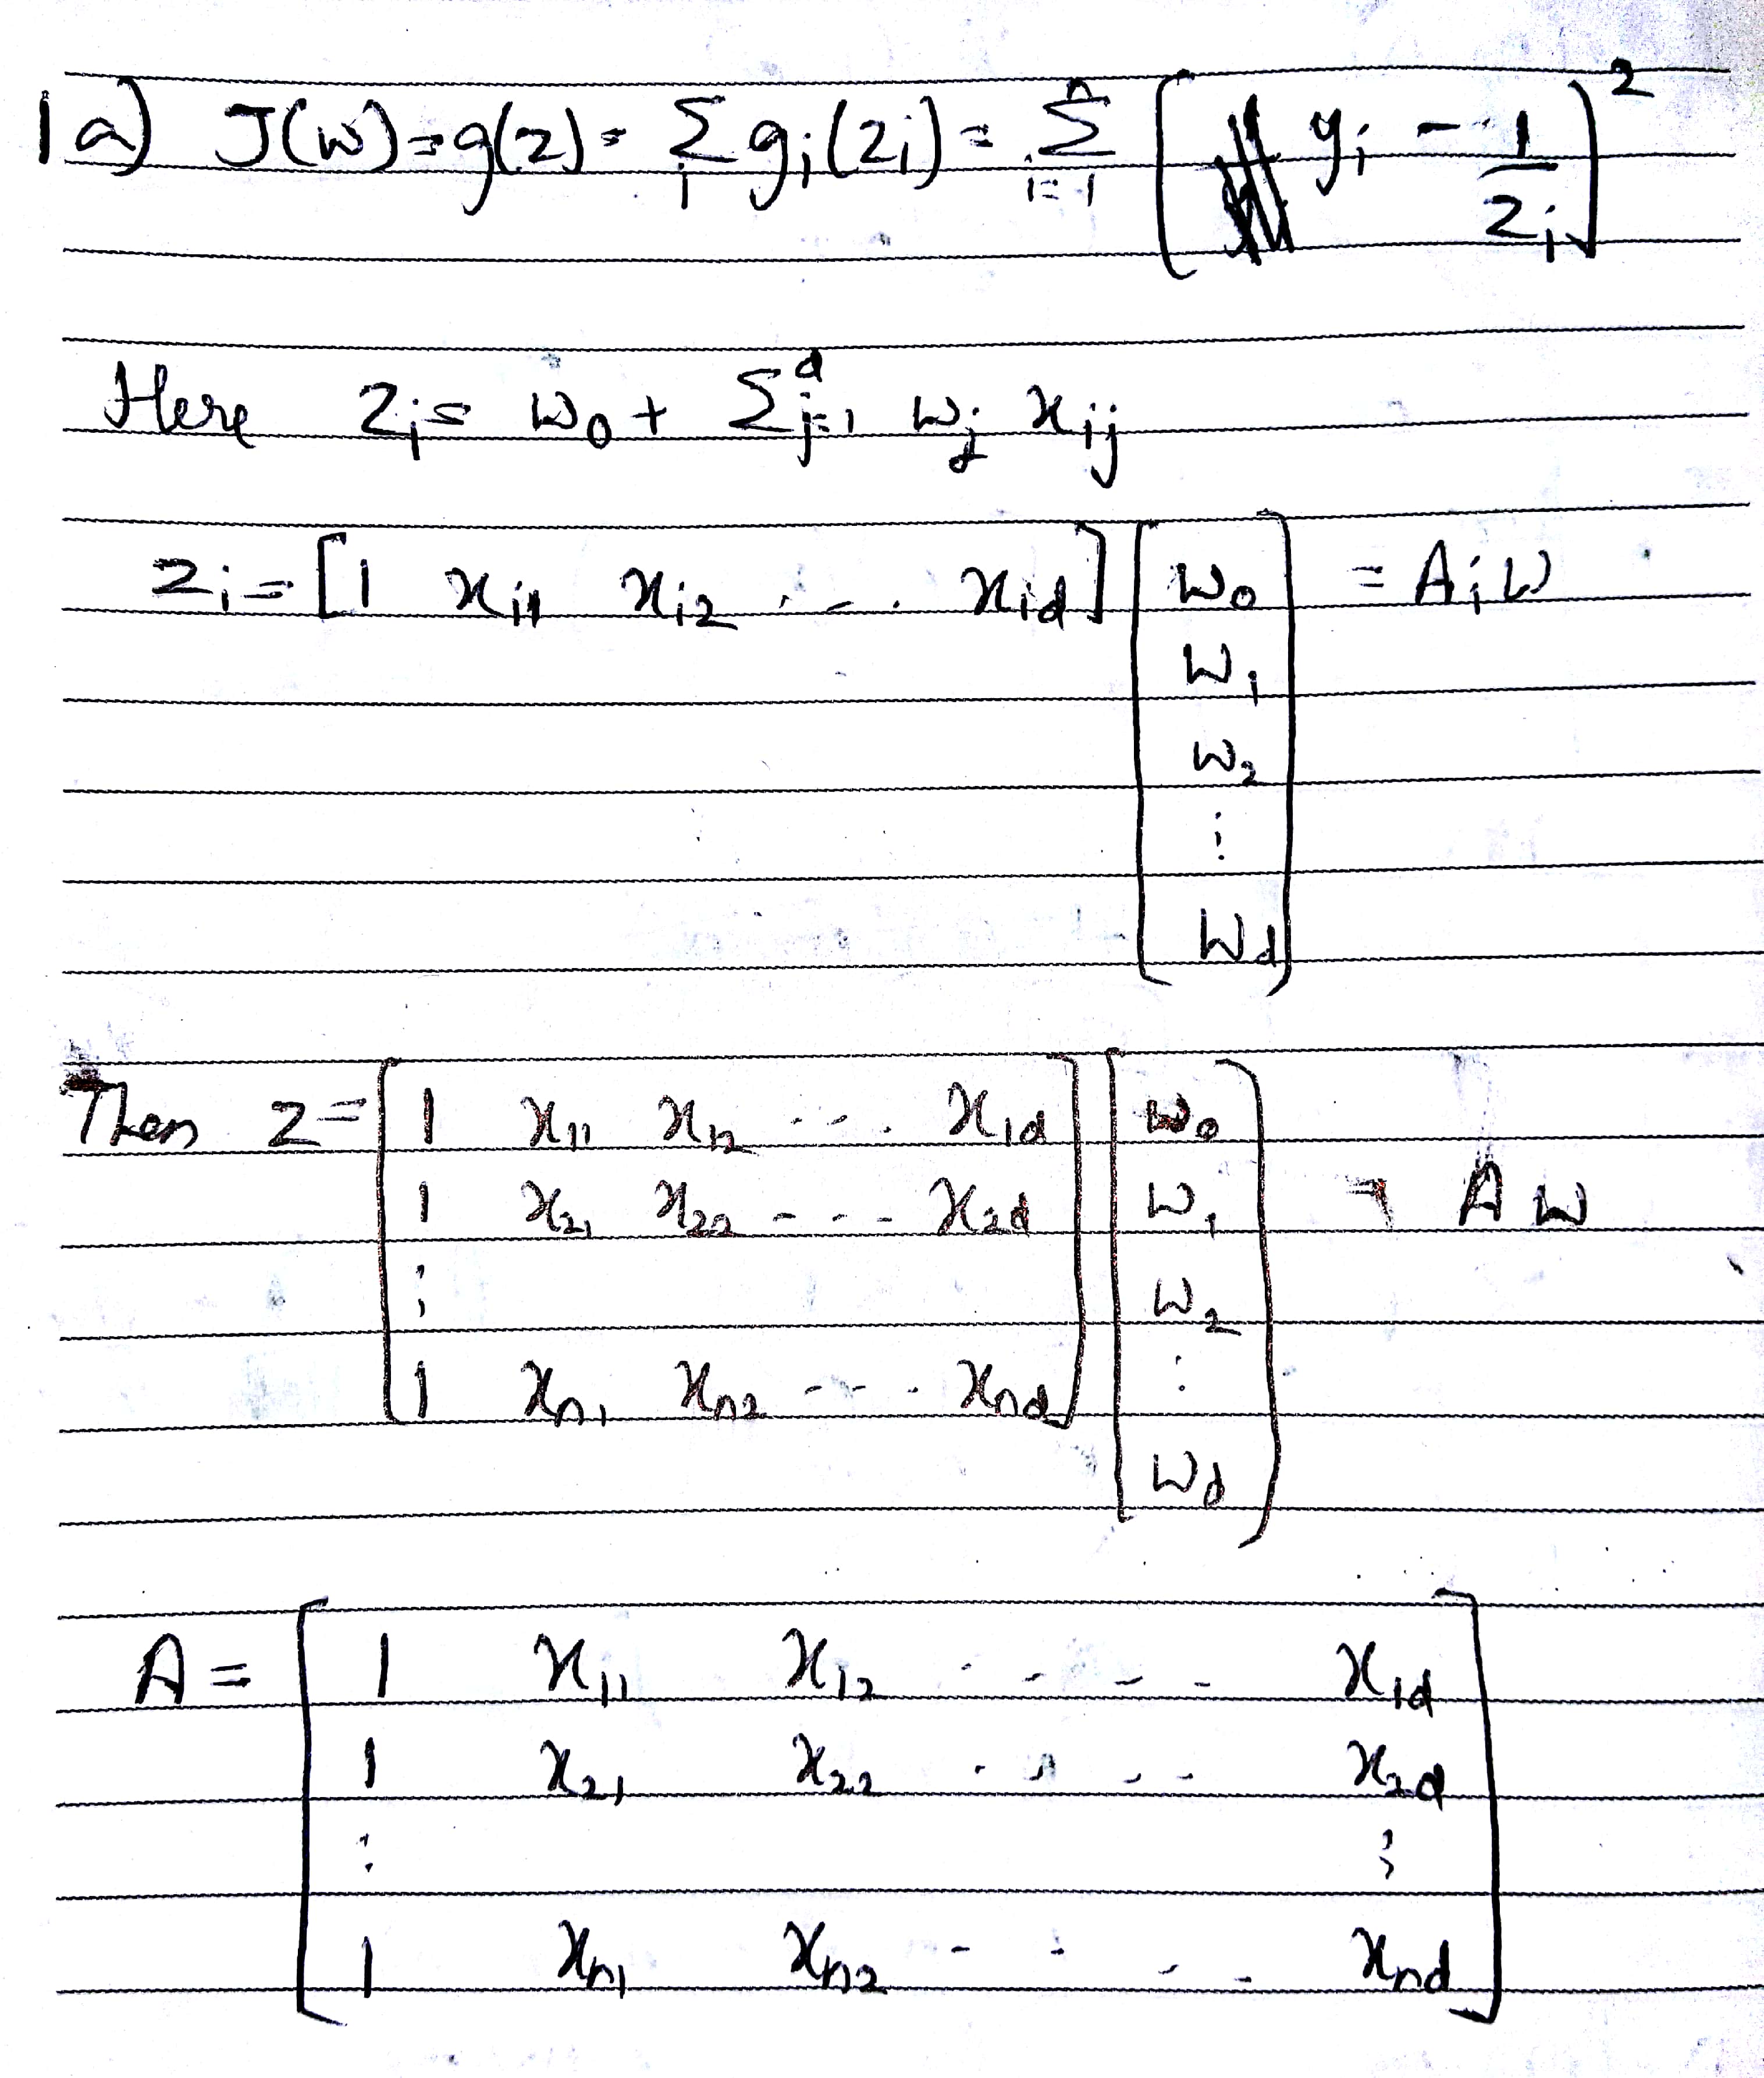 1a) J(w) = g(z) = Σ_i g_i(z_i) = Σ_{i=1}^{n} [ y_i - 1/z_i ]^2
Here z_i = w_0 + Σ_{j=1}^{d} w_j x_{ij}
z_i = [1 x_{i1} x_{i2} . - . . x_{id}] [w_0 = A_i w
w_1
w_2
⋮
w_d]
Then z = [1 x_{11} x_{12} - - . . x_{1d}] [w_0
1 x_{21} x_{22} - - - - x_{2d} w_1 = A w
⋮ w_2
1 x_{n1} x_{n2} - - - . x_{nd}] ⋮
w_d]
A = [ 1 x_{11} x_{12} . - - - x_{1d}
1 x_{21} x_{22} . . - - x_{2d}
⋮ ⋮
1 x_{n1} x_{n2} - - - . x_{nd} ]